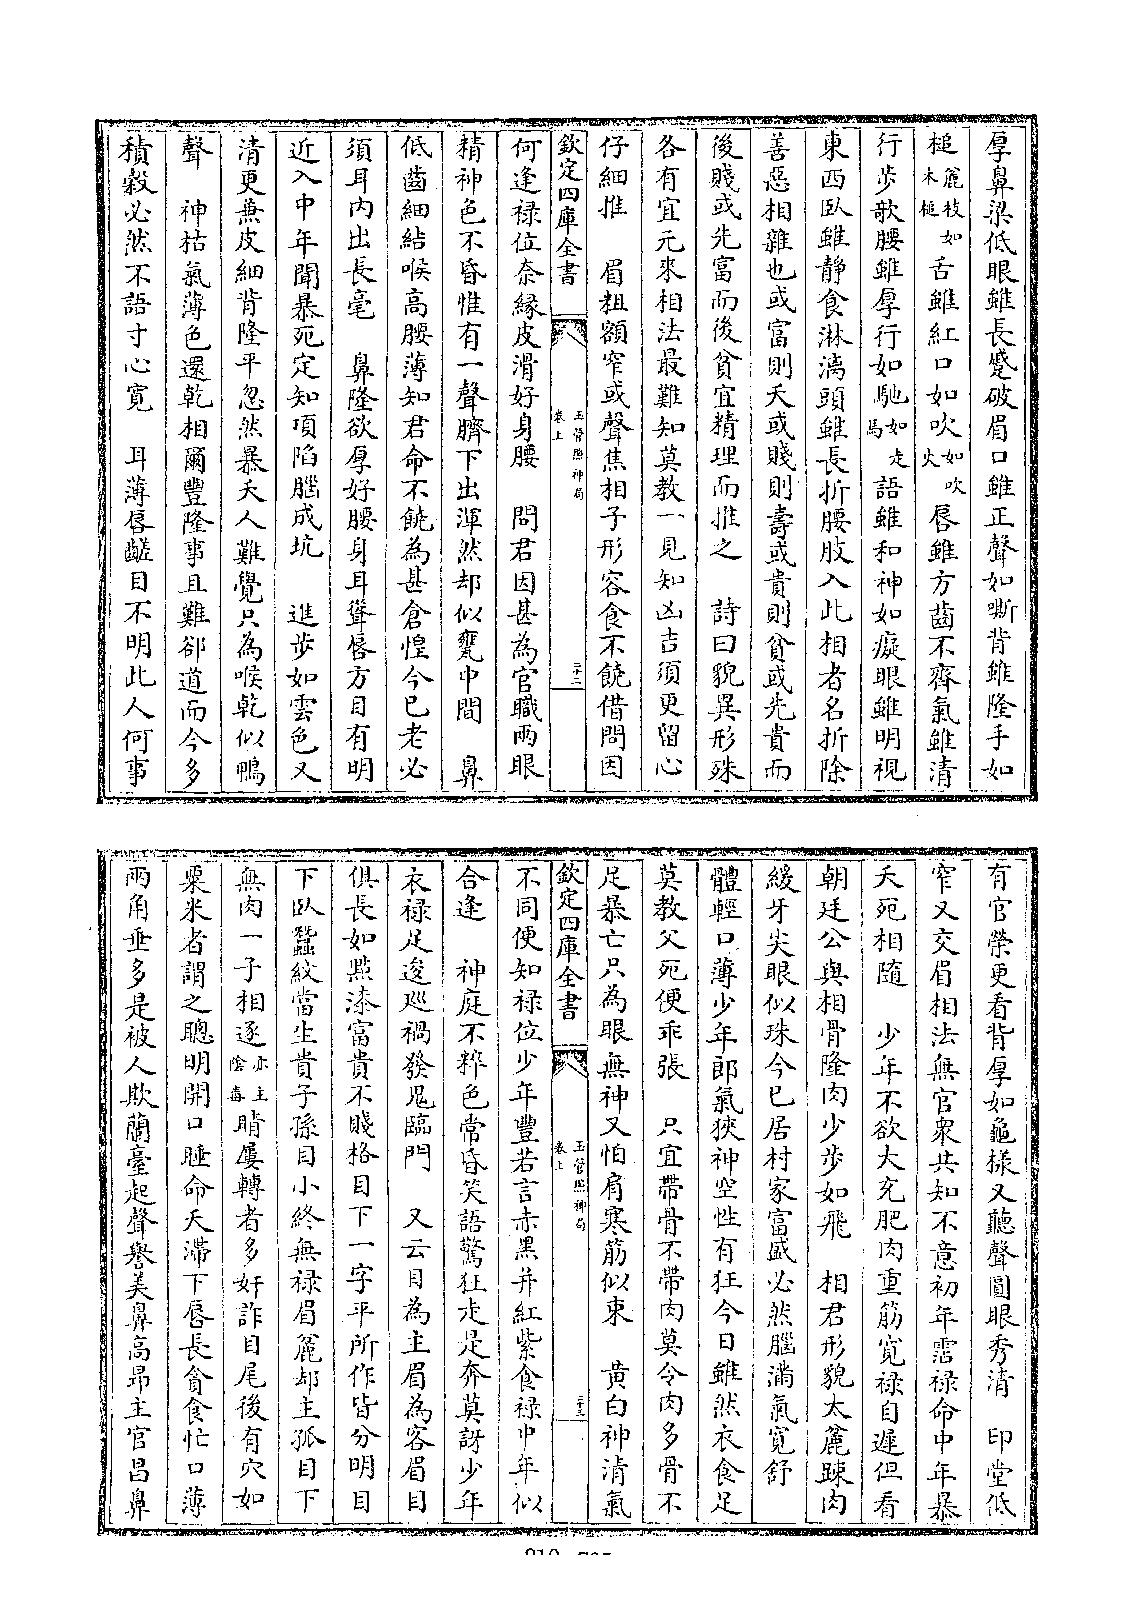 厚鼻梁低眼雖長蹙破眉口雖正聲如嘶背雖隆手如
槌麄枝木槌如舌雖紅口如吹如吹火唇雖方齒不齊氣雖清
行步欹腰雖厚行如馳如走馬語雖和神如癡眼雖明視
東西臥雖静食淋漓頭雖長折腰肢入此相者名折除
善惡相雜也或富則夭或賤則壽或貴則貧或先貴而
後賤或先富而後貧宜精理而推之　詩曰貌異形殊
各有宜元來相法最難知莫教一見知凶吉須更留心
仔細推　眉粗額窄或聲焦相子形容食不饒借問因
欽定四庫全書　玉管照神局　卷上　二十二
何逢禄位奈縁皮滑好身腰　問君因甚為官職兩眼
精神色不昏惟有一聲臍下出渾然却似甕中間　鼻
低齒細結喉高腰薄知君命不饒為甚倉惶今已老必
須耳内出長毫　鼻隆欲厚好腰身耳聳唇方目有明
近入中年聞暴死定知項陷腦成坑　進步如雲色又
清更兼皮細背隆平忽然暴夭人難覺只為喉乾似鴨
聲　神枯氣薄色還乾相爾豐隆事且難卻道而今多
積穀必然不語寸心寛　耳薄唇䶥目不明此人何事
有官榮更看背厚如龜樣又聽聲圓眼秀清　印堂低
窄又交眉相法無官衆共知不意初年霑禄命中年暴
夭死相随　少年不欲大充肥肉重筋寛禄自遲但看
朝廷公與相骨隆肉少步如飛　相君形貌太麄踈肉
緩牙尖眼似珠今已居村家富盛必然腦滿氣寛舒
體輕口薄少年郎氣狹神空性有狂今日雖然衣食足
莫教父死便乖張　只宜帶骨不帶肉莫令肉多骨不
足暴亡只為眼無神又怕肩寒筋似束　黄白神清氣
欽定四庫全書　玉管照神局　卷上　二十三
不同便知禄位少年豐若言赤黑并紅紫食禄中年似
合逢　神庭不粹色常昏笑語驚狂走是奔莫訝少年
衣禄足逡巡禍發鬼臨門　又云目為主眉為客眉目
俱長如點漆富貴不賤格目下一字平所作皆分明目
下臥蠶紋當生貴子孫目小終無禄眉麄却主孤目下
無肉一子相逐亦主隂毒睛屢轉者多奸詐目尾後有穴如
粟米者謂之聰明開口睡命夭滯下唇長貪食忙口薄
兩角垂多是被人欺蘭臺起聲譽美鼻高昻主官昌鼻